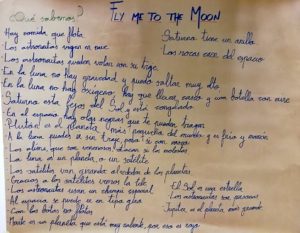 ¿Qué sabemos?
FLY ME TO THE MOON
Hay comida que flota.
Los astronautas viajan en nave.
Los astronautas pueden volar con su traje.
En la luna no hay gravedad y puedo saltar muy alto.
En la luna no hay oxígeno: hay que llevar casco y una botella con aire
Saturno está lejos del Sol y está congelado.
En el espacio hay olas negras que te pueden tragar.
Plutón es el planeta más pequeño del mundo y es frío y marrón.
A la luna puedes ir sin traje para si con mayor
Los aliens, que son venenosos, atacan si les molesta
La luna es un planeta o un satélite.
Los satélites van girando alrededor de los planetas.
Gracias a los satélites vemos la tele.
Los astronautas usan un champú especial.
Al espacio se puede ir en tipo
Con las botas no flotas
Marte es un planeta que está muy caliente, por eso es rojo
Saturno tiene un anillo.
Las rocas caen del espacio
El Sol es una estrella
Los astronautas
Júpiter es el planeta más grande